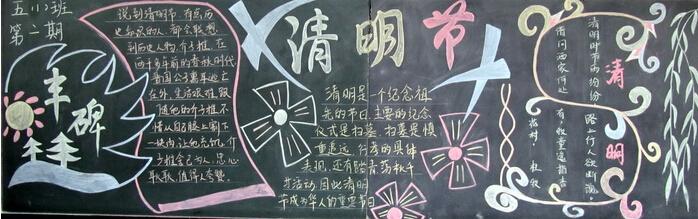 五(1)班
第二期
丰碑
说到清明节，有点历
史知识的人，都会联想
到历史人物介子推。在
两千多年前的春秋时代
晋国公子重耳逃亡
在外，生活艰难，跟
随他的介子推不
惜从自己腿上割下
一块肉让他充饥，介
子推舍己为人，忠心
耿耿，值得人夸赞。
清明节
清明是一个纪念祖
先的节日，主要的纪念
仪式是扫墓，扫墓是慎
重追远、行孝的具体
表现，还有踏青荡秋千
等活动，因此清明
节成为华人的重要节日
清明
清明时节雨纷纷，
路上行人欲断魂。
借问酒家何处
有，牧童遥指杏
花村。 杜牧